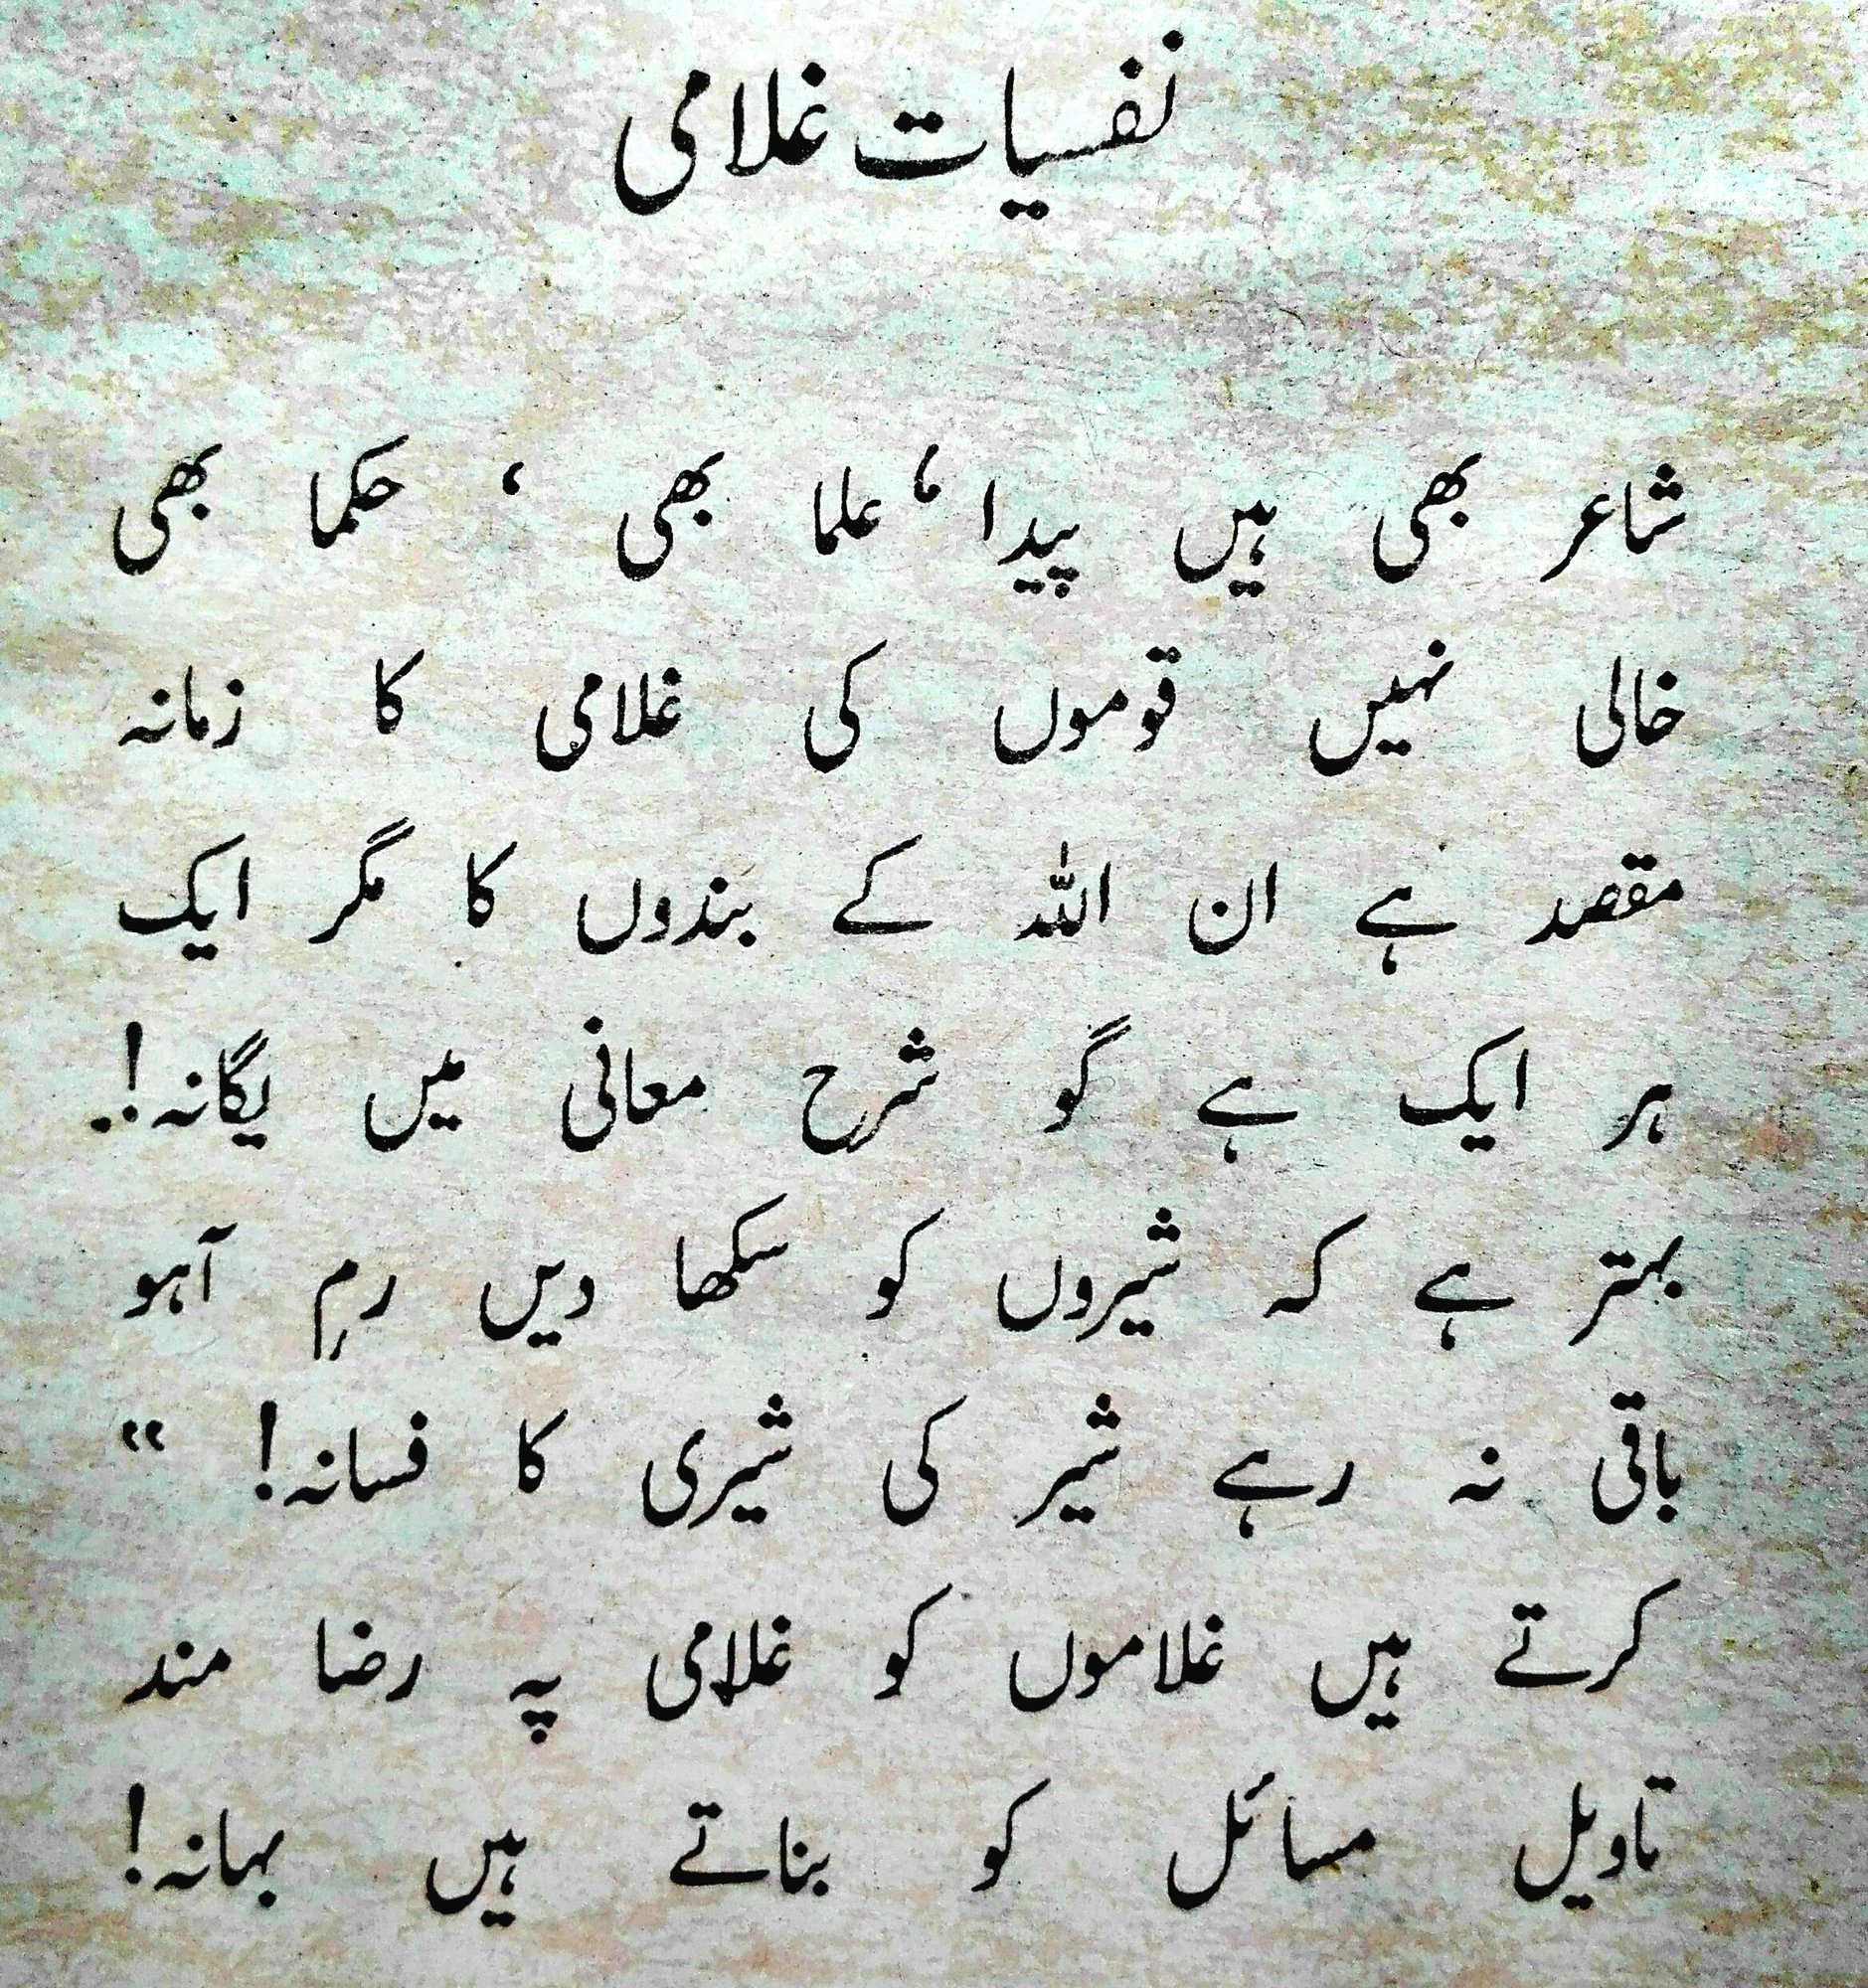 نفسیات غلامی
شاعر بھی ہیں پیدا ‘ علما بھی ‘ حکما بھی
خالی نہیں قوموں کی غلامی کا زمانہ
مقصد ہے ان اللہ کے بندوں کا مگر ایک
ہر ایک ہے گو شرح معانی میں یگانہ!
بہتر ہے کہ شیروں کو سکھا دیں رمِ آہو
باقی نہ رہے شیر کی شیری کا فسانہ! “
کرتے ہیں غلاموں کو غلامی پہ رضا مند
تاویل مسائل کو بناتے ہیں بہانہ!